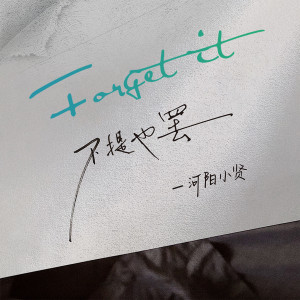 Forget it
不提也罢
一河阳小贤